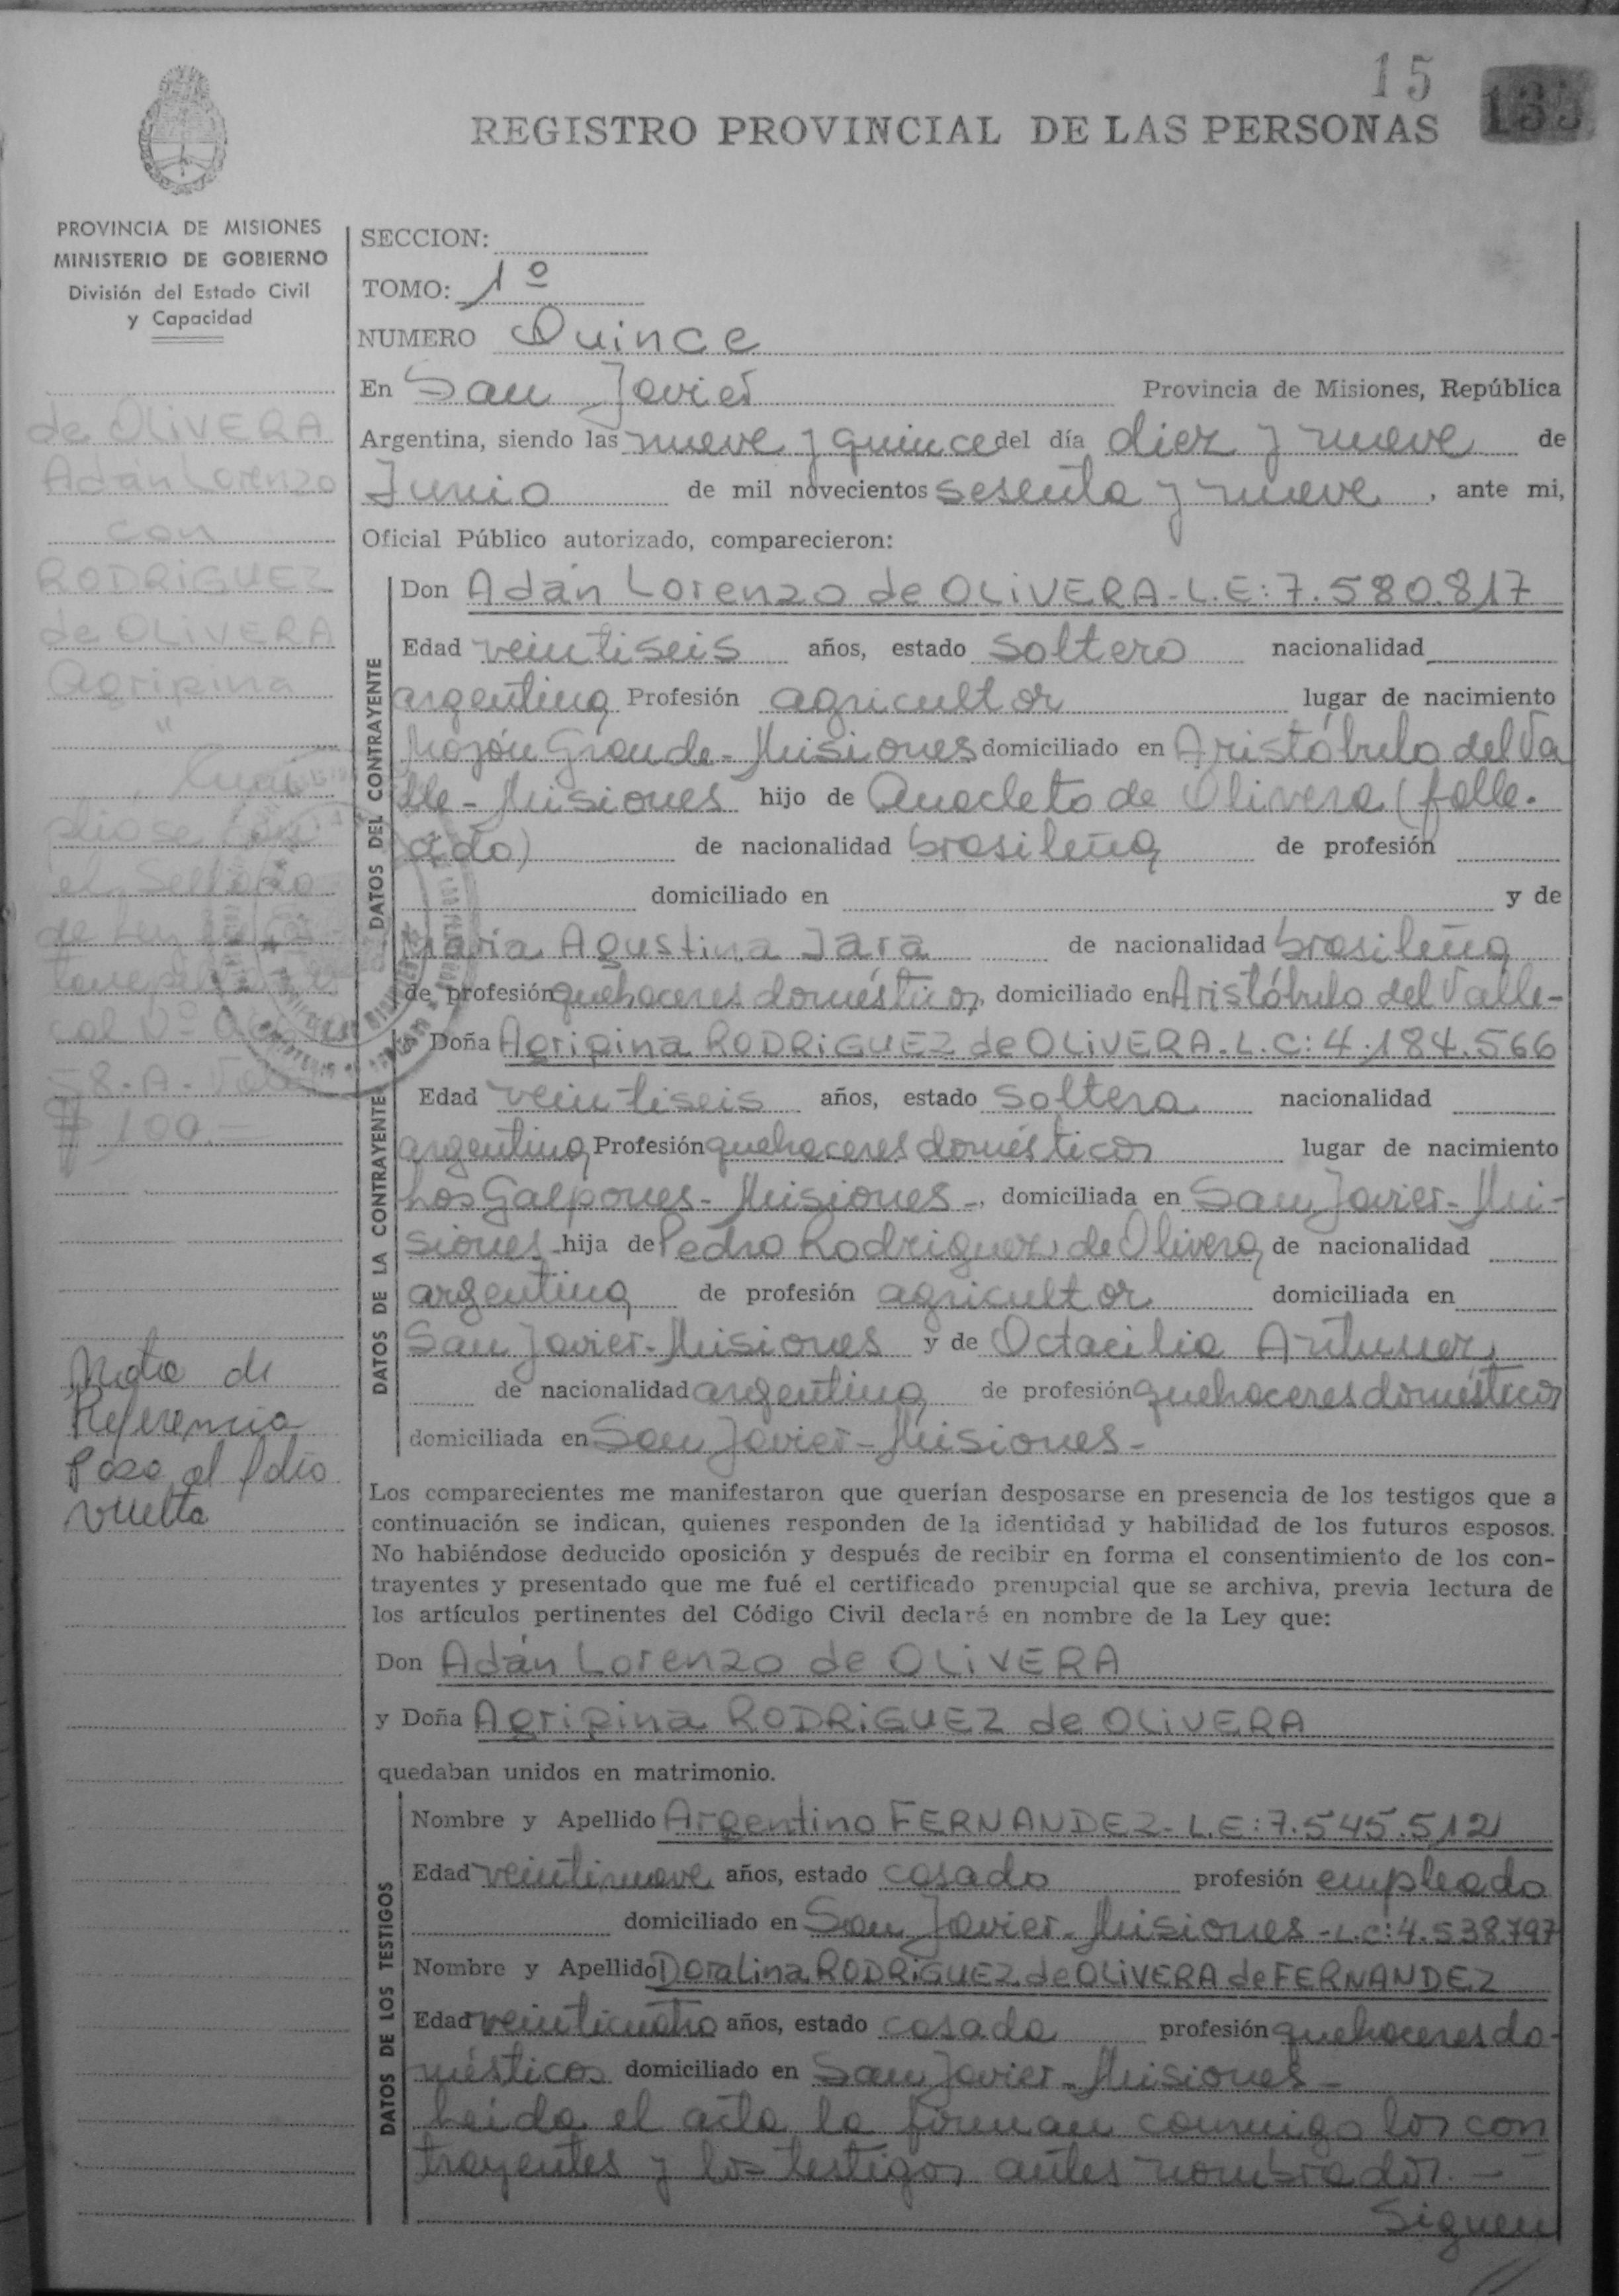 15
REGISTRO PROVINCIAL DE LAS PERSONAS
PROVINCIA DE MISIONES
MINISTERIO DE GOBIERNO
División del Estado Civil
y Capacidad
de OLiVERA
Adán Lorenzo
con
RODRiGUEZ
de OLiVERA
Agripina
"
pliose con
el Sellado
de Ley
58.A. Vale
$ 100.—
Nota de
Referencia
Pasa al folio
vuelta
SECCION:
TOMO: 1º
NUMERO Quince
En San Javier Provincia de Misiones, República
Argentina, siendo las nueve y quince del día diez y nueve de
Junio de mil novecientos sesenta y nueve, ante mi,
Oficial Público autorizado, comparecieron:
DATOS DEL CONTRAYENTE
Don Adán Lorenzo de OLiVERA-L.E:7.580.817
Edad veintiseis años, estado soltero nacionalidad
argentina Profesión agricultor lugar de nacimiento
Mojón Grande-Misiones domiciliado en Aristóbulo del Va
lle-Misiones hijo de Anacleto de Olivera (falle-
cido) de nacionalidad brasileña de profesión
domiciliado en y de
María Agustina Jara de nacionalidad brasileña
de profesión quehaceres domésticos, domiciliado en Aristóbulo del Valle-
DATOS DE LA CONTRAYENTE
Doña Agripina RODRiGUEZ de OLiVERA.L.C:4.184.566
Edad veintiseis años, estado soltera nacionalidad
argentina Profesión quehaceres domésticos lugar de nacimiento
Los Galpones-Misiones-, domiciliada en San Javier-Mi-
siones hija de Pedro Rodriguez de Olivera de nacionalidad
argentina de profesión agricultor domiciliada en
San Javier-Misiones y de Octacilia Antunez
de nacionalidad argentina de profesión quehaceres domésticos
domiciliada en San Javier-Misiones-
Los comparecientes me manifestaron que querían desposarse en presencia de los testigos que a
continuación se indican, quienes responden de la identidad y habilidad de los futuros esposos.
No habiéndose deducido oposición y después de recibir en forma el consentimiento de los con-
trayentes y presentado que me fué el certificado prenupcial que se archiva, previa lectura de
los artículos pertinentes del Código Civil declaré en nombre de la Ley que:
Don Adán Lorenzo de OLiVERA
y Doña Agripina RODRiGUEZ de OLiVERA
quedaban unidos en matrimonio.
DATOS DE LOS TESTIGOS
Nombre y Apellido Argentino FERNANDEZ-L.E:7.545.512
Edad veintinueve años, estado casado profesión empleado
domiciliado en San Javier-Misiones-L.C:4.538.797
Nombre y Apellido Doralina RODRiGUEZ de OLiVERA de FERNANDEZ
Edad veinticuatro años, estado casada profesión quehaceres do-
mésticos domiciliado en San Javier-Misiones-
Leida el acta la firman conmigo los con
trayentes y los testigos antes nombrados.—
Siguen